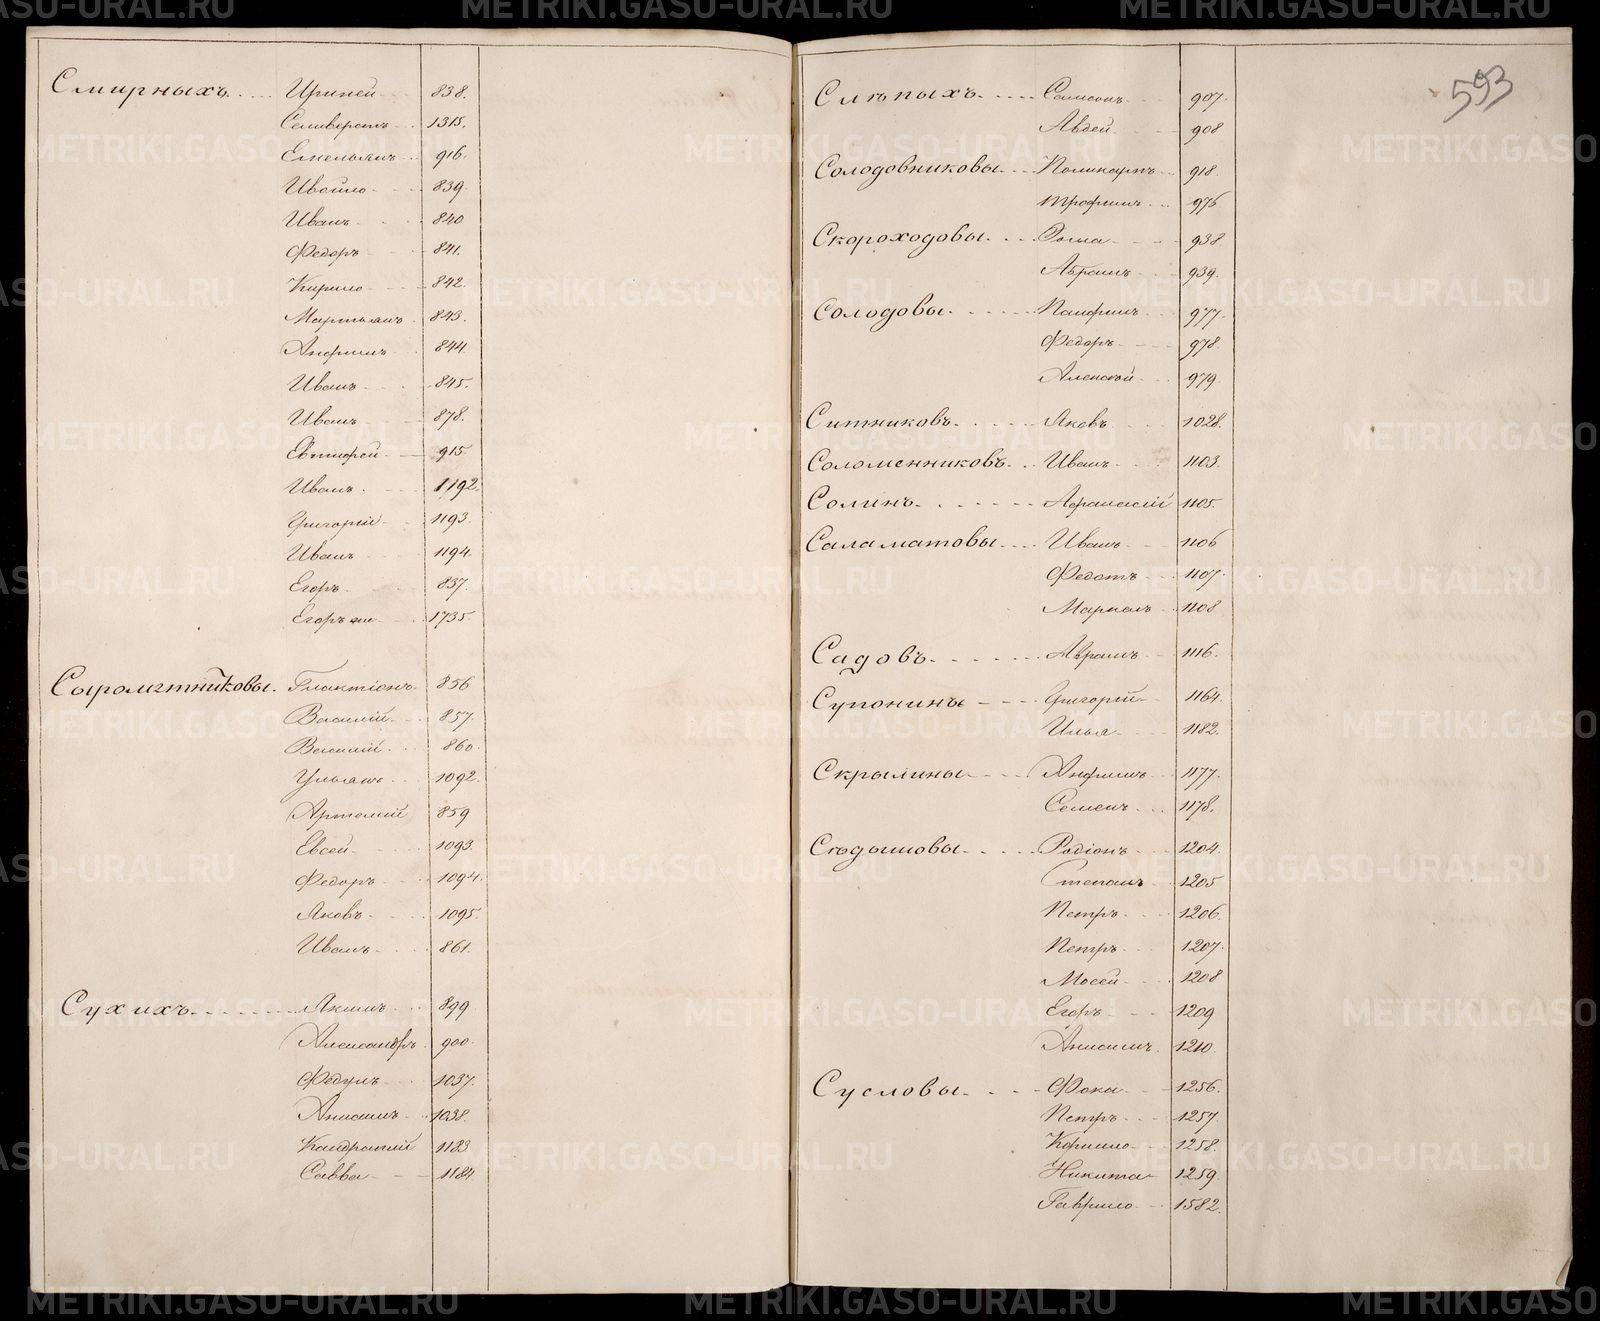 Смирныхъ Ириней 838.
Селиверстъ 1315.
Емельянъ 916.
Ивойло 839.
Иванъ 840
Федоръ 841.
Кирило 842.
Мартьянъ 843.
Анфимъ 844.
Иванъ 845.
Иванъ 878.
Евтифей 915
Иванъ 1192.
Григорій 1193.
Иванъ 1194.
Егоръ 837.
Егоръ 1735.
Сыромятниковы. Галактіонъ 856
Василій 857.
Василій 860.
Ульянъ 1092.
Артемій 859
Евсей 1093.
Федоръ 1094.
Яковъ 1095.
Иванъ 861.
Сухихъ Якимъ 899
Александръ 900.
Федулъ 1037.
Анисимъ 1038.
Кандратий 1183
Савва 1184
593
Слѣпыхъ Самсонъ 907.
Авдей 908
Солодовниковы Поликарпъ 918.
Трофимъ 976
Скороходовы Фома 938.
Абрамъ 939.
Солодовы Панфилъ 977.
Федоръ 978.
Алексѣй 979.
Ситниковъ Яковъ 1028.
Соломенниковъ Иванъ 1103.
Солинъ Афанасій 1105.
Саламатовы Иванъ 1106
Федотъ 1107.
Маркелъ 1108
Садовъ Аврамъ 1116.
Супонинъ Григорій 1164.
Илья 1182.
Скрылины Анфимъ 1177.
Семенъ 1178.
Сѣдышовы Родіонъ 1204.
Степанъ 1205
Петръ 1206.
Петръ 1207.
Мосей 1208
Егоръ 1209
Анисимъ 1210.
Сусловы Фока 1256.
Петръ 1257.
Корнило 1258.
Никита 1259
Гаврило 1582.